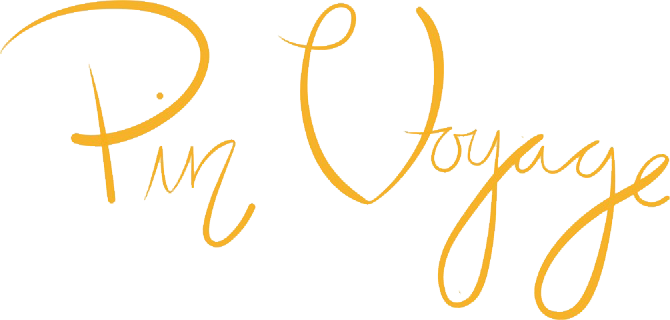 Pin Voyage